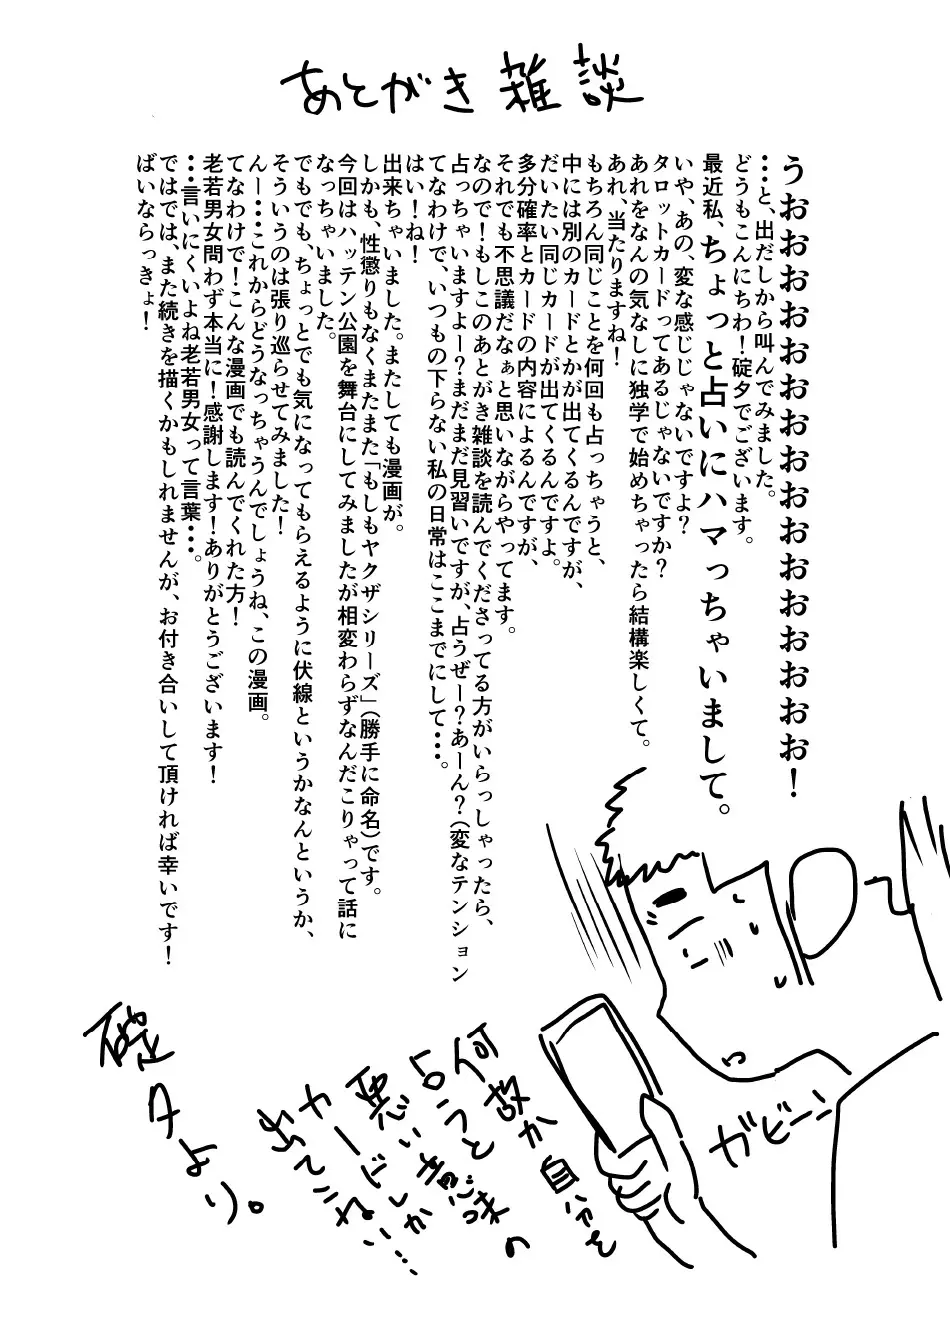 あとがき雑談
うおおおおおおおおおおおおおおお！
・・・と、出だしから叫んでみました。
どうもこんにちわ！碇夕でございます。
最近私、ちょっと占いにハマっちゃいまして。
いや、あの、変な感じじゃないですよ？
タロットカードってあるじゃないですか？
あれをなんの気なしに独学で始めちゃったら結構楽しくて。
あれ、当たりますね！
もちろん同じことを何回も占っちゃうと、
中には別のカードとかが出てくるんですが、
だいたい同じカードが出てくるんですよ。
多分確率とカードの内容によるんですが、
それでも不思議だなぁと思いながらやってます。
なので！もしこのあとがき雑談を読んでくださってる方がいらっしゃったら、
占っちゃいますよー？まだまだ見習いですが、占うぜー？あーん？（変なテンション
てなわけで、いつもの下らない私の日常はここまでにして・・・。
はい！ね！
出来ちゃいました。またしても漫画が。
しかも、性懲りもなくまたまた「もしもヤクザシリーズ」（勝手に命名）です。
今回はハッテン公園を舞台にしてみましたが相変わらずなんだこりゃって話に
なっちゃいました。
でもでも、ちょっとでも気になってもらえるように伏線というかなんというか、
そういうのは張り巡らせてみました！
んー・・・これからどうなっちゃうんでしょうね、この漫画。
てなわけで！こんな漫画でも読んでくれた方！
老若男女問わず本当に！感謝します！ありがとうございます！
・・・言いにくいよね老若男女って言葉・・・。
ではでは、また続きを描くかもしれませんが、お付き合いして頂ければ幸いです！
ばいならっきょ！
ガビーン
何故か自分を
占うと
悪い意味の
カードしか
出てこねい…
碇夕より。